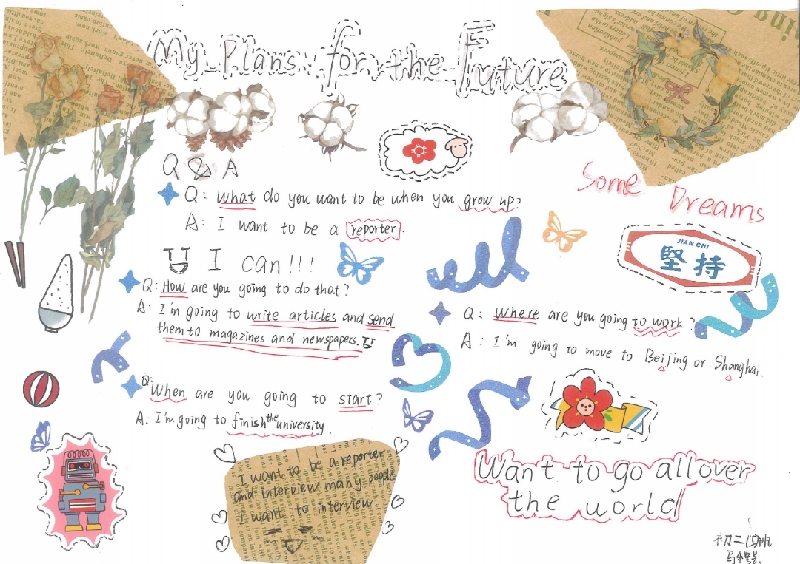 My Plans for the Future
Q & A
Q: What do you want to be when you grow up?
A: I want to be a reporter.
Some Dreams
JIAN CHI
堅持
I can!!!
Q: How are you going to do that?
A: I'm going to write articles and send
them to magazines and newspapers.
Q: Where are you going to work?
A: I'm going to move to Beijing or Shanghai.
Q: When are you going to start?
A: I'm going to finish the university.
I want to be a reporter
and interview many people
I want to interview
Want to go all over
the world
初二